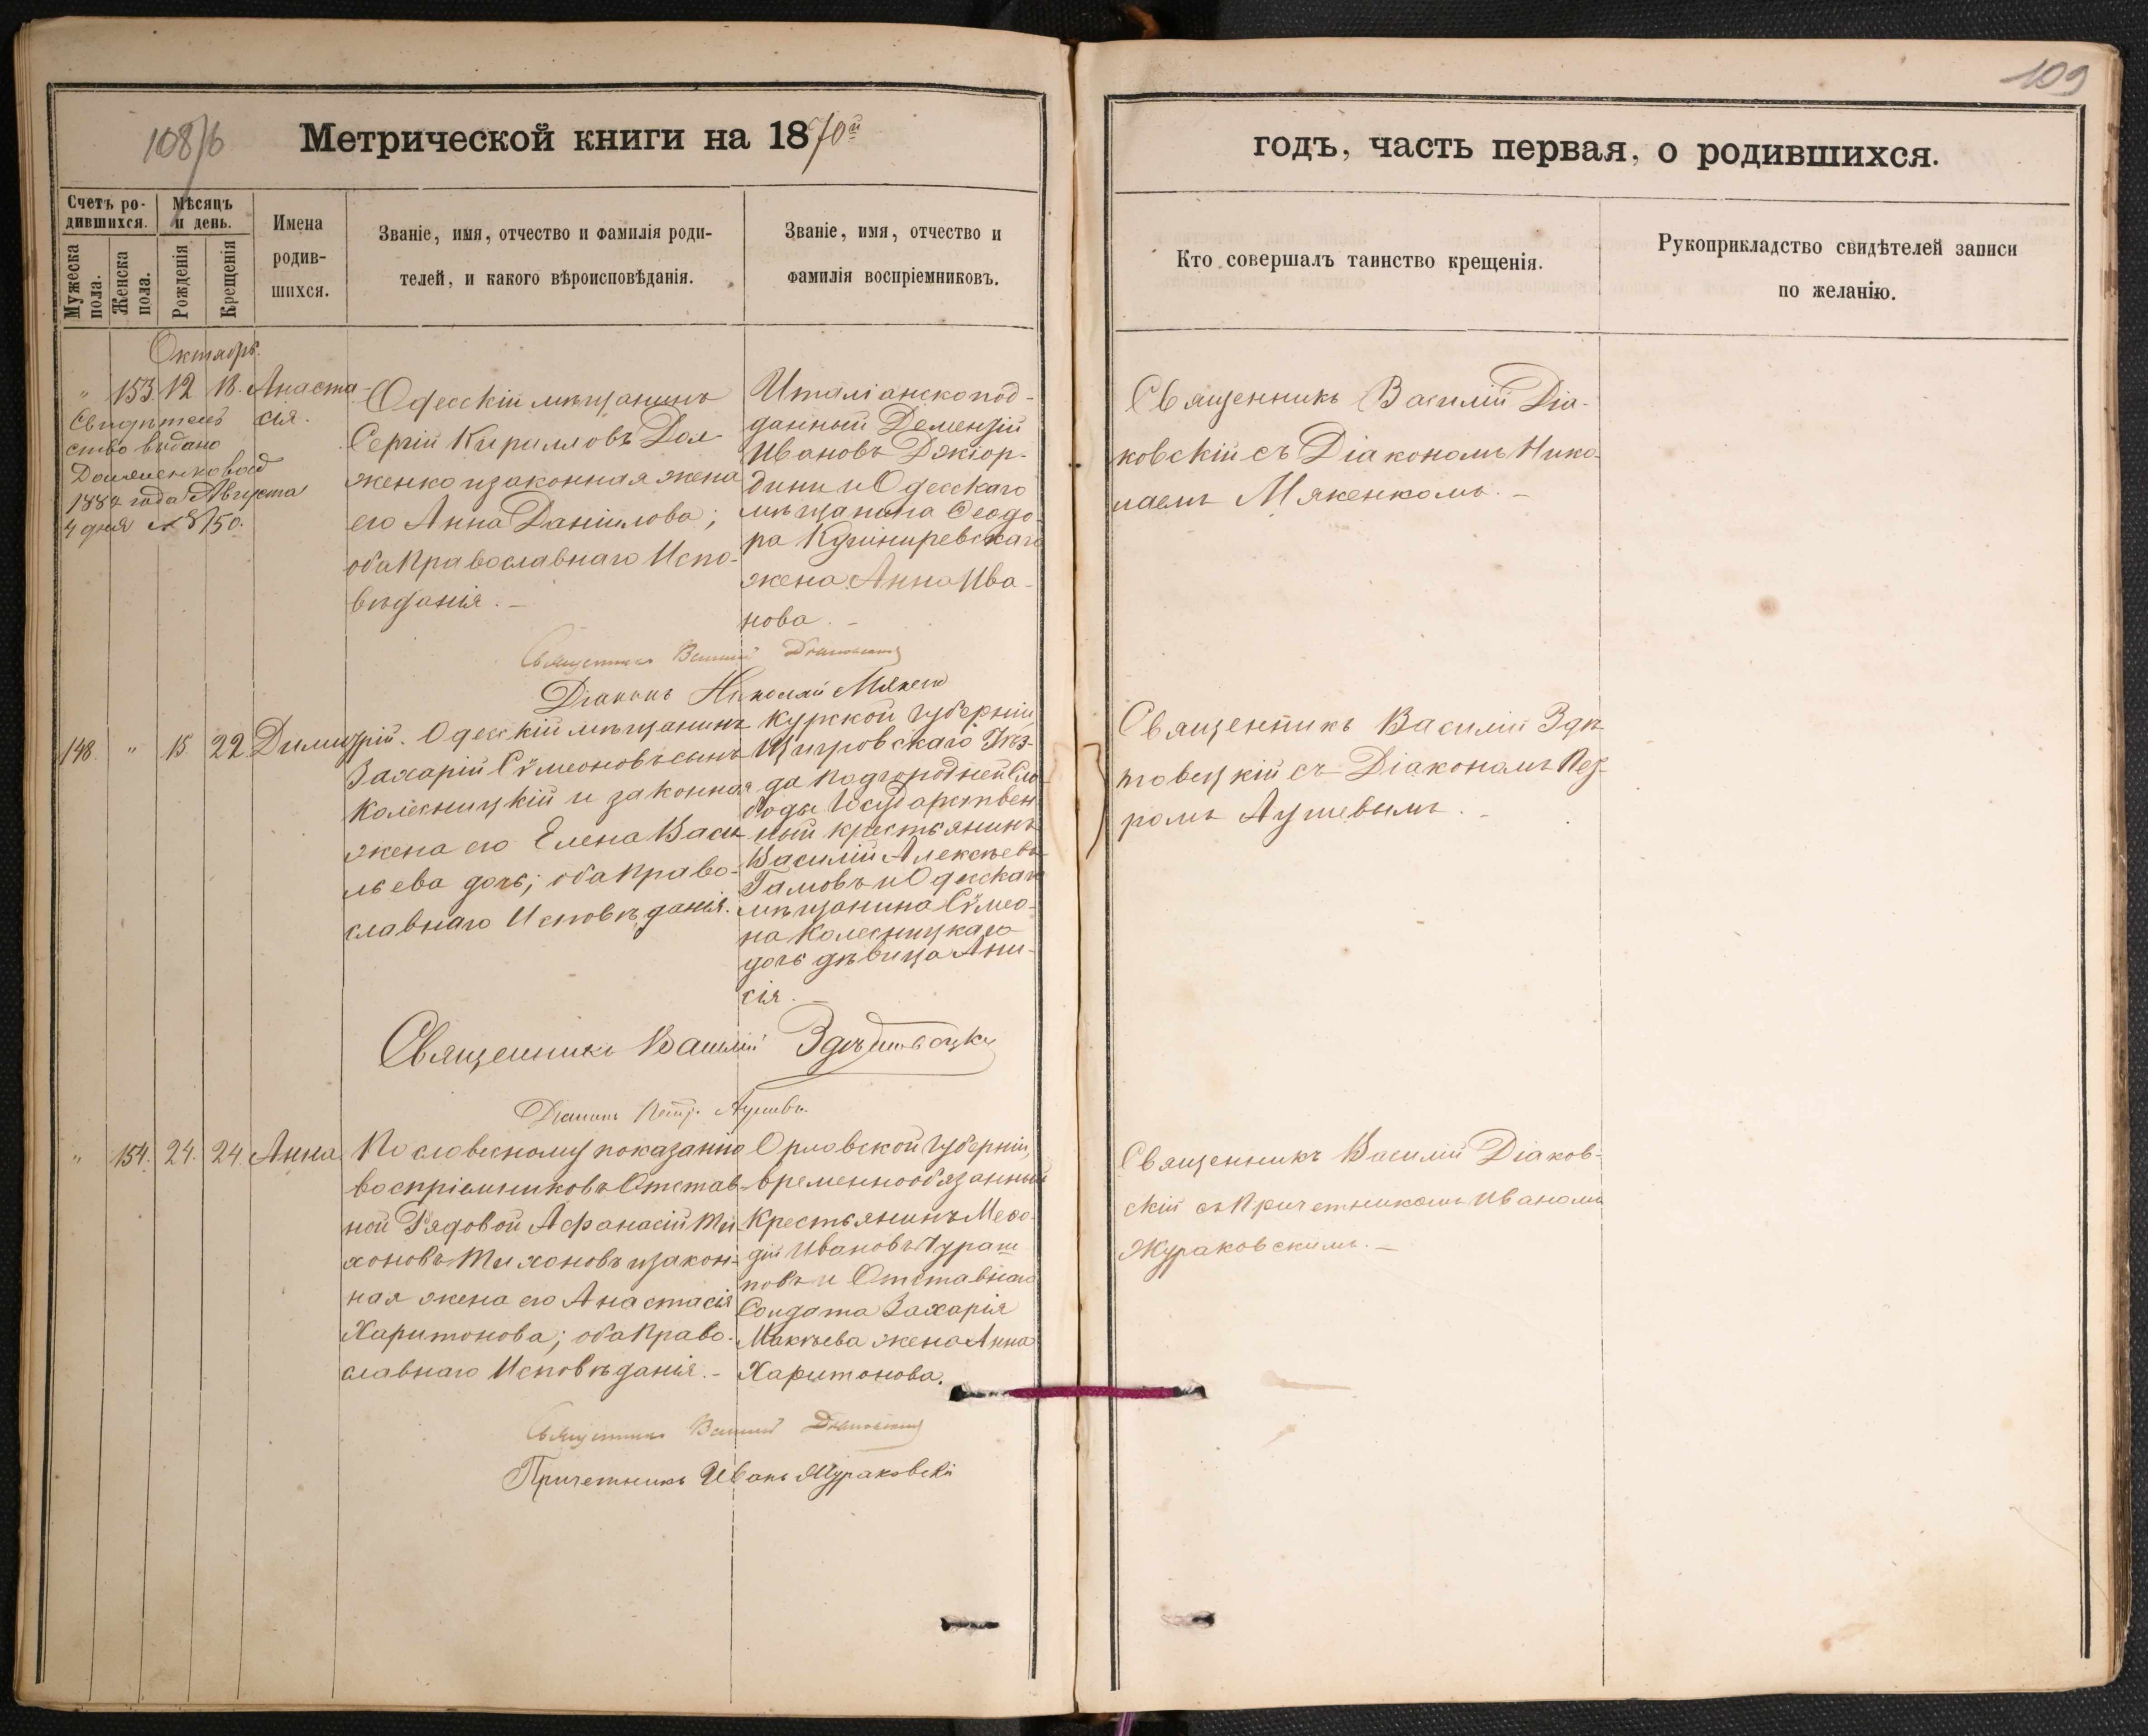 109
108/б
Метрической книги на 1870й
годъ, часть первая, о родившихся.
Счетъ ро-
дившихся.
Мужеска
пола.
Женска
пола.
Мѣсяцъ
и день.
Рожденія
Крещенія
Имена
родив-
шихся.
Званіе, имя, отчество и фамилія роди-
телей, и какого вѣроисповѣданія.
Званіе, имя, отчество и
фамилія воспріемниковъ.
Кто совершалъ таинство крещенія.
Рукоприкладство свидѣтелей записи
по желанію.
Октябрь.
" 153. 12 18. Анаста-
сія.
Свидѣтель
ство выдано
1884 года Августа
4 дня № 8150.
Одесскій мѣщанинъ
Сергій Кирилловъ Дол
женко и законная жена
его Анна Даніилова;
оба Православнаго Испо-
вѣданія. –
Италіанско под-
данный Демензій
Ивановъ Джіор-
дини и Одесскаго
мѣщанина Ѳеодо-
ра
жена Анна Ива-
нова. –
Священникъ Василій Діа-
ковскій съ Діакономъ Нико-
лаемъ Мякенкомъ. –
Священникъ Василій Діаковскій
Діаконъ Николай
148. " 15 22 Димитрій.
Одесскій мѣщанинъ
Захарій Сѵмеоновъ сынъ
Колесницкій и законная
жена его Елена Васи
льева дочь; оба Право-
славнаго Исповѣданія.
Курской Губерніи
Щигровскаго Уѣз-
да Подгородней Сло
боды Государствен
ный крестьянинъ
Василій Алексѣевъ
Гамовъ и Одесскаго
мѣщанина Сѵмео-
на Колесницкаго
дочь дѣвица Ани-
сія. –
Священникъ Василій Здѣ
товецкій съ Діакономъ Пет
ромъ Аушевымъ. –
Священникъ Василій Здѣтовецкій
Діаконъ Петръ Аушевъ.
" 154. 24. 24. Анна
По словесному показанію
воспріемниковъ Отстав-
ной Рядовой Аѳанасій Ти
хоновъ Тихоновъ и закон-
ная жена его Анастасія
Харитонова; оба Право-
славнаго Исповѣданія. –
Орловской Губерніи,
временнообязанный
Крестьянинъ Меѳо-
дій Ивановъ
новъ и Отставнаго
Солдата Захарія
Макѣева жена Анна
Харитонова.
Священникъ Василій Діаков-
скій съ Причетникомъ Иваномъ
Жураковскимъ. –
Священникъ Василій Діаковскій
Причетникъ Иванъ Жураковскій